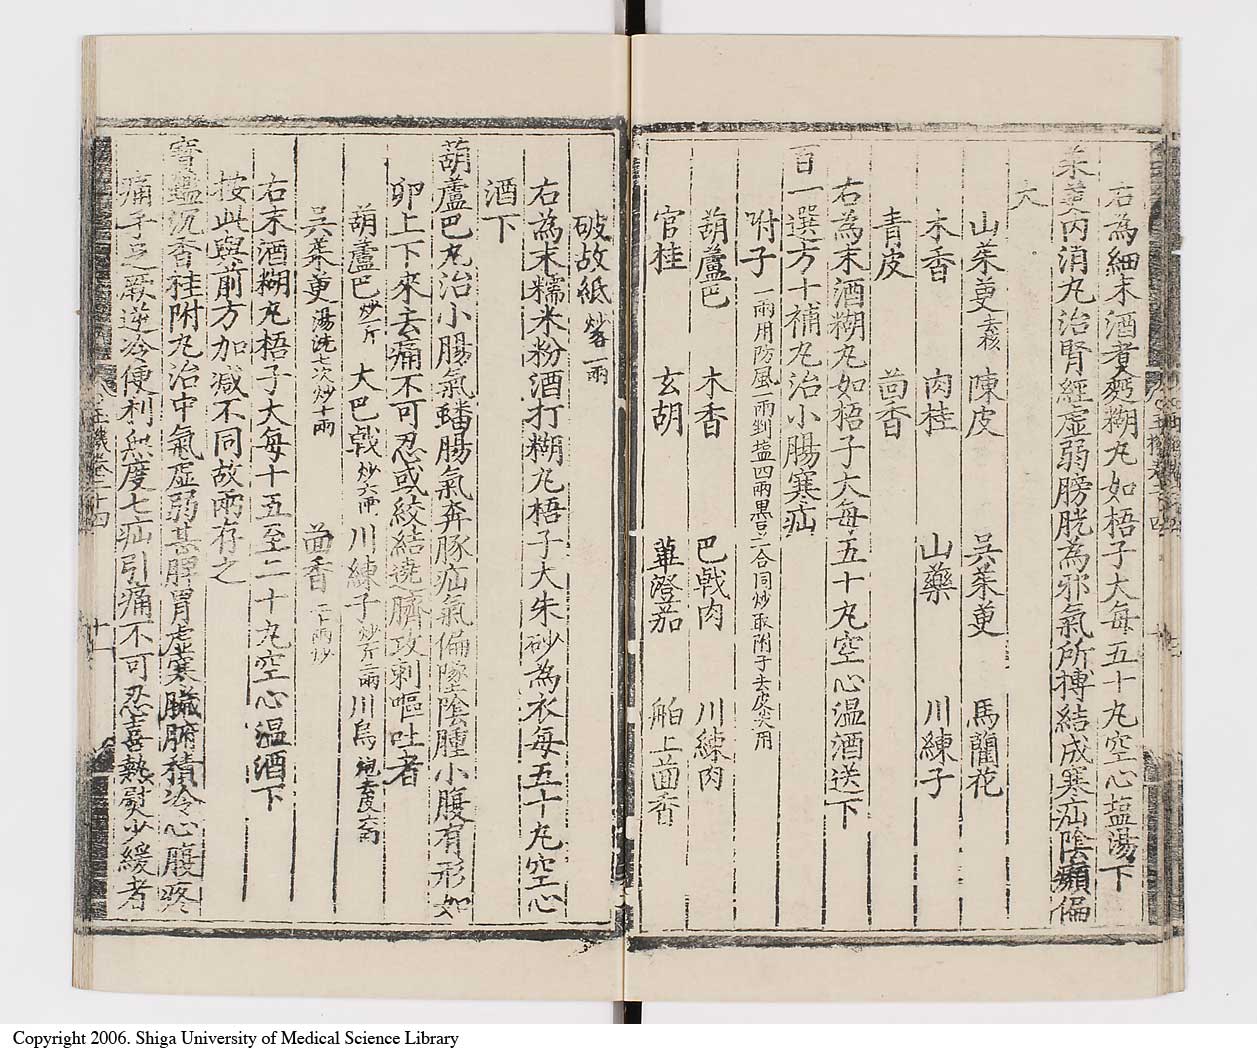 右為細末酒煑麪糊丸如梧子大每五十丸空心塩湯下
茱萸内消丸治腎經虛弱膀胱為邪氣所搏結成寒疝陰㿗偏
大
山茱萸去核 陳皮 吳茱萸 馬藺花
木香 肉桂 山藥 川練子
青皮 茴香
右為末酒糊丸如梧子大每五十丸空心温酒送下
百一選方十補丸治小腸寒疝
附子一兩用防風一兩剉塩四兩黒豆一合同炒取附子去皮尖用
葫蘆巴 木香 巴戟肉 川練肉
官桂 玄胡 蓽澄茄 舶上茴香
破故紙炒各一兩
右為末糯米粉酒打糊丸梧子大朱砂為衣每五十丸空心
酒下
葫蘆巴丸治小腸氣蟠腸氣奔豚疝氣偏墜陰腫小腹有形如
卵上下來去痛不可忍或絞結遶臍攻刺嘔吐者
葫蘆巴炒一斤 大巴戟炒六兩 川練子炒一斤二兩 川烏炮去皮六兩
吳茱萸湯洗七次炒十兩 茴香十二兩炒
右末酒糊丸梧子大每十五至二十丸空心温酒下
按此與前方加减不同故兩存之
寶鑑沉香桂附丸治中氣虛弱甚脾胃虛寒臟腑積冷心腹疼
痛手足厥逆冷便利無度七疝引痛不可忍喜熱熨少緩者
Copyright 2006. Shiga University of Medical Science Library